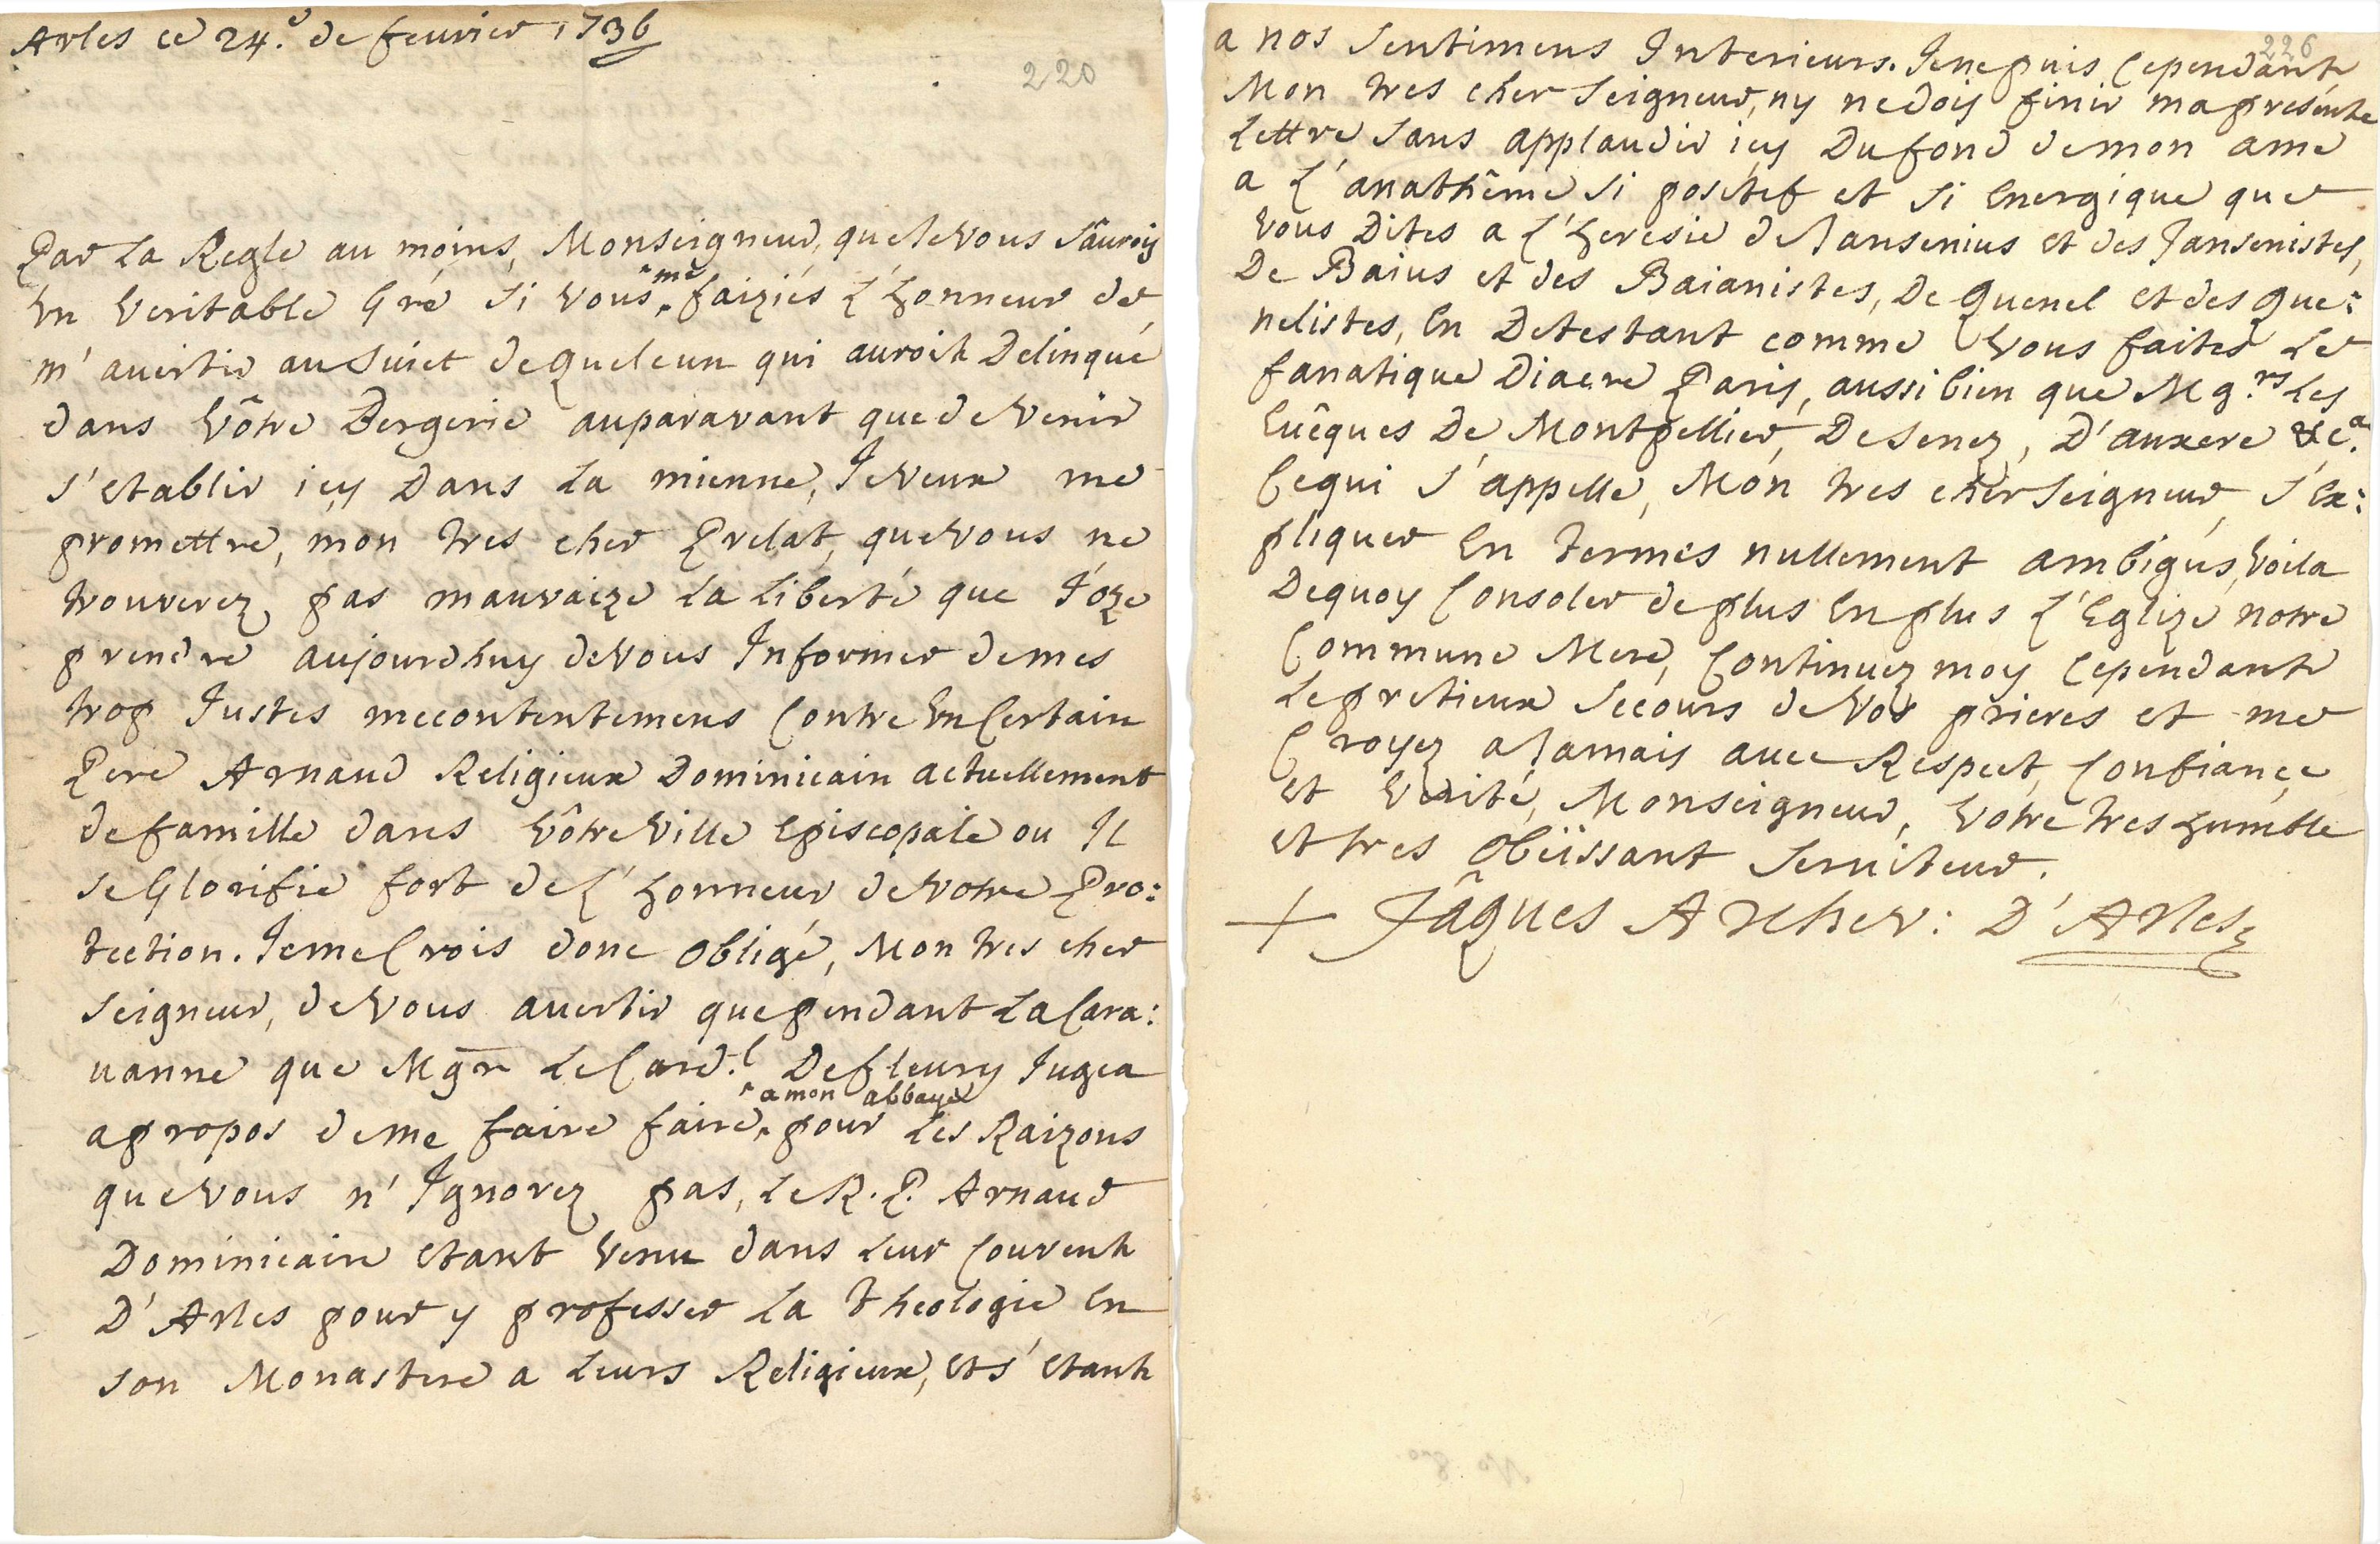 Arles ce 24.e de feurier 1736
220
Par La Regle au moins, Monseigneur, que Je Vous Sâurois
Vn Veritable Gré Si Vous me faiziés L'honneur de
m'auertir au Suiet de Quelcun qui auroit Delinqué
dans Vôtre Bergerie auparavant que de Venir
s'etablir icy Dans La mienne, Je Veux me
promettre, mon tres cher Prelat, que Vous ne
trouverez pas mauvaize La Liberté que J'oze
prendre aujourdhuy de Vous Informer de mes
trop Justes mecontentemens Contre Vn Certain
Pere Arnaud Religieux Dominicain actuellement
de famille dans Vôtre Ville Episcopale ou Il
se Glorifie fort de L'honneur de Votre Pro:
tection. Je me Crois donc Obligé, Mon tres cher
Seigneur, de Vous auertir que pendant La Cara:
uanne que Mgr Le Card.l De fleury Jugea
a propos de me faire faire a mon abbaye pour Les Raizons
que Vous n'Ignorez pas, Le R. P. Arnaud
Dominicain Etant Venu dans Leur Couvent
D'Arles pour y professer La Theologie En
son Monastere a Leurs Religieux, Et s'Etant
226
a nos Sentimens Interieurs. Je ne puis Cependant
Mon tres cher Seigneur, ny ne dois finir ma presente
Lettre Sans applaudir icy Du fond de mon ame
a L'anathême Si positef et Si Energique que
Vous Dites a L'heresie de Jansenius et des Jansenistes,
De Baius et des Baianistes, De Quenel et des Que:
nelistes, En Detestant comme Vous faites Le
fanatique Diacre Paris, aussi bien que Mg.rs Les
Euêques De Montpellier, De Senez, D'auxere &c.a
Ce qui S'appelle, Mon tres cher Seigneur, S'Ex:
pliquer En termes nullement ambigus, Voila
Dequoy Consoler de plus En plus L'Eglize notre
Commune Mere, Continuez moy Cependant
Le pretieux Secours de Vos prieres et me
Croyez a Jamais auec Respect, Confiance
et Verité, Monseigneur, Votre tres humble
et tres Obeissant Seruiteur.
+ Jâques Archev: D'Arles